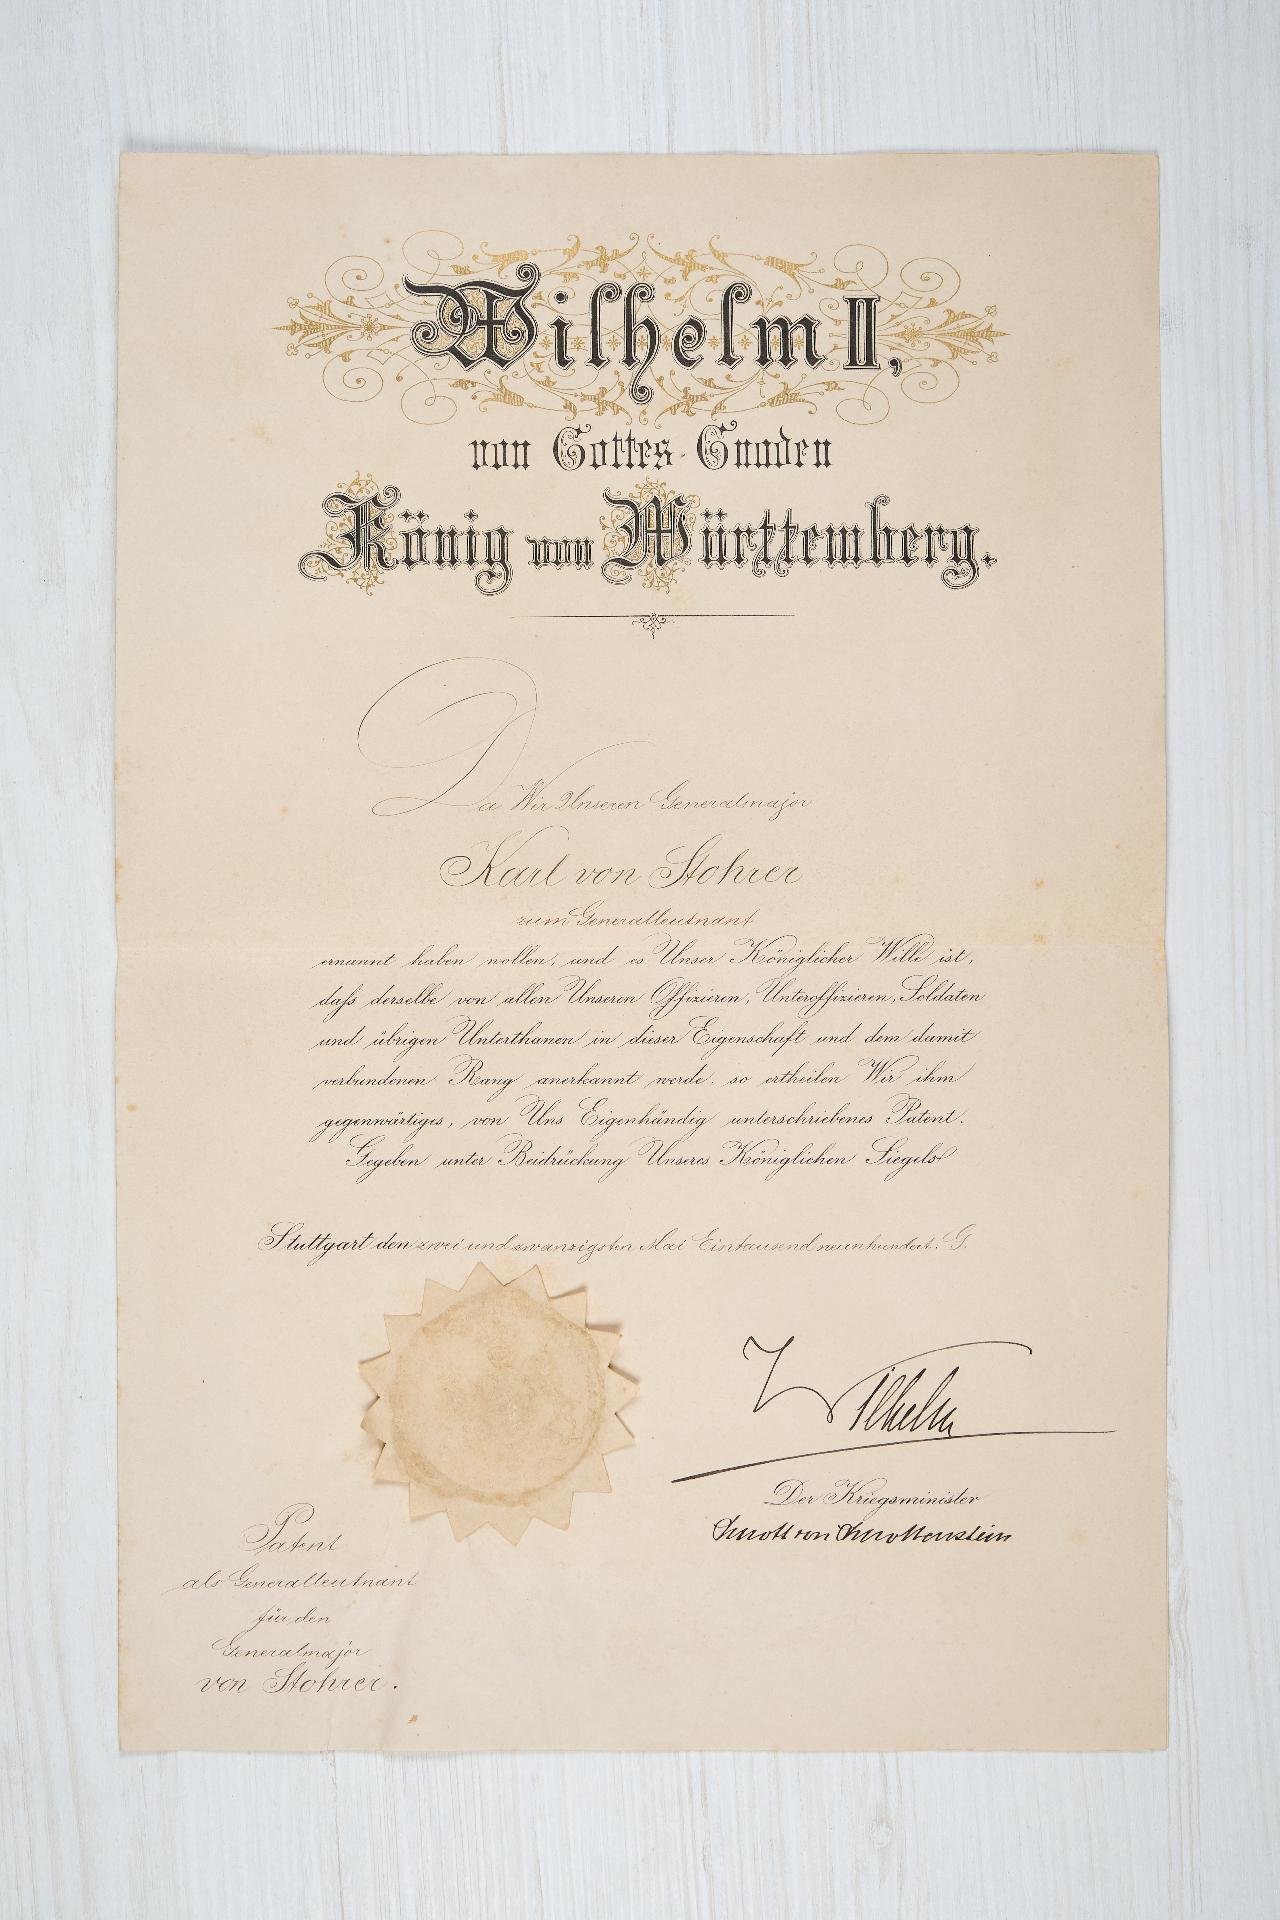 Wilhelm II,
von Gottes Gnaden
König von Württemberg.
Da Wir Unseren Generalmajor
Karl von Stohrer
zum Generalleutnant
ernannt haben wollen, und es Unser Königlicher Wille ist,
daſs derselbe von allen Unseren Offizieren, Unteroffizieren, Soldaten
und übrigen Unterthanen in dieser Eigenschaft und dem damit
verbundenen Rang anerkannt werde, so ertheilen Wir ihm
gegenwärtiges, von Uns Eigenhändig unterschriebenes Patent.
Gegeben unter Beidrückung Unseres Königlichen Siegels
Stuttgart den zwei und zwanzigsten Mai Eintausend neunhundert. G.
Wilhelm
Der Kriegsminister
Schott von Schottenstein
Patent
als Generalleutnant
für den
Generalmajor
von Stohrer.